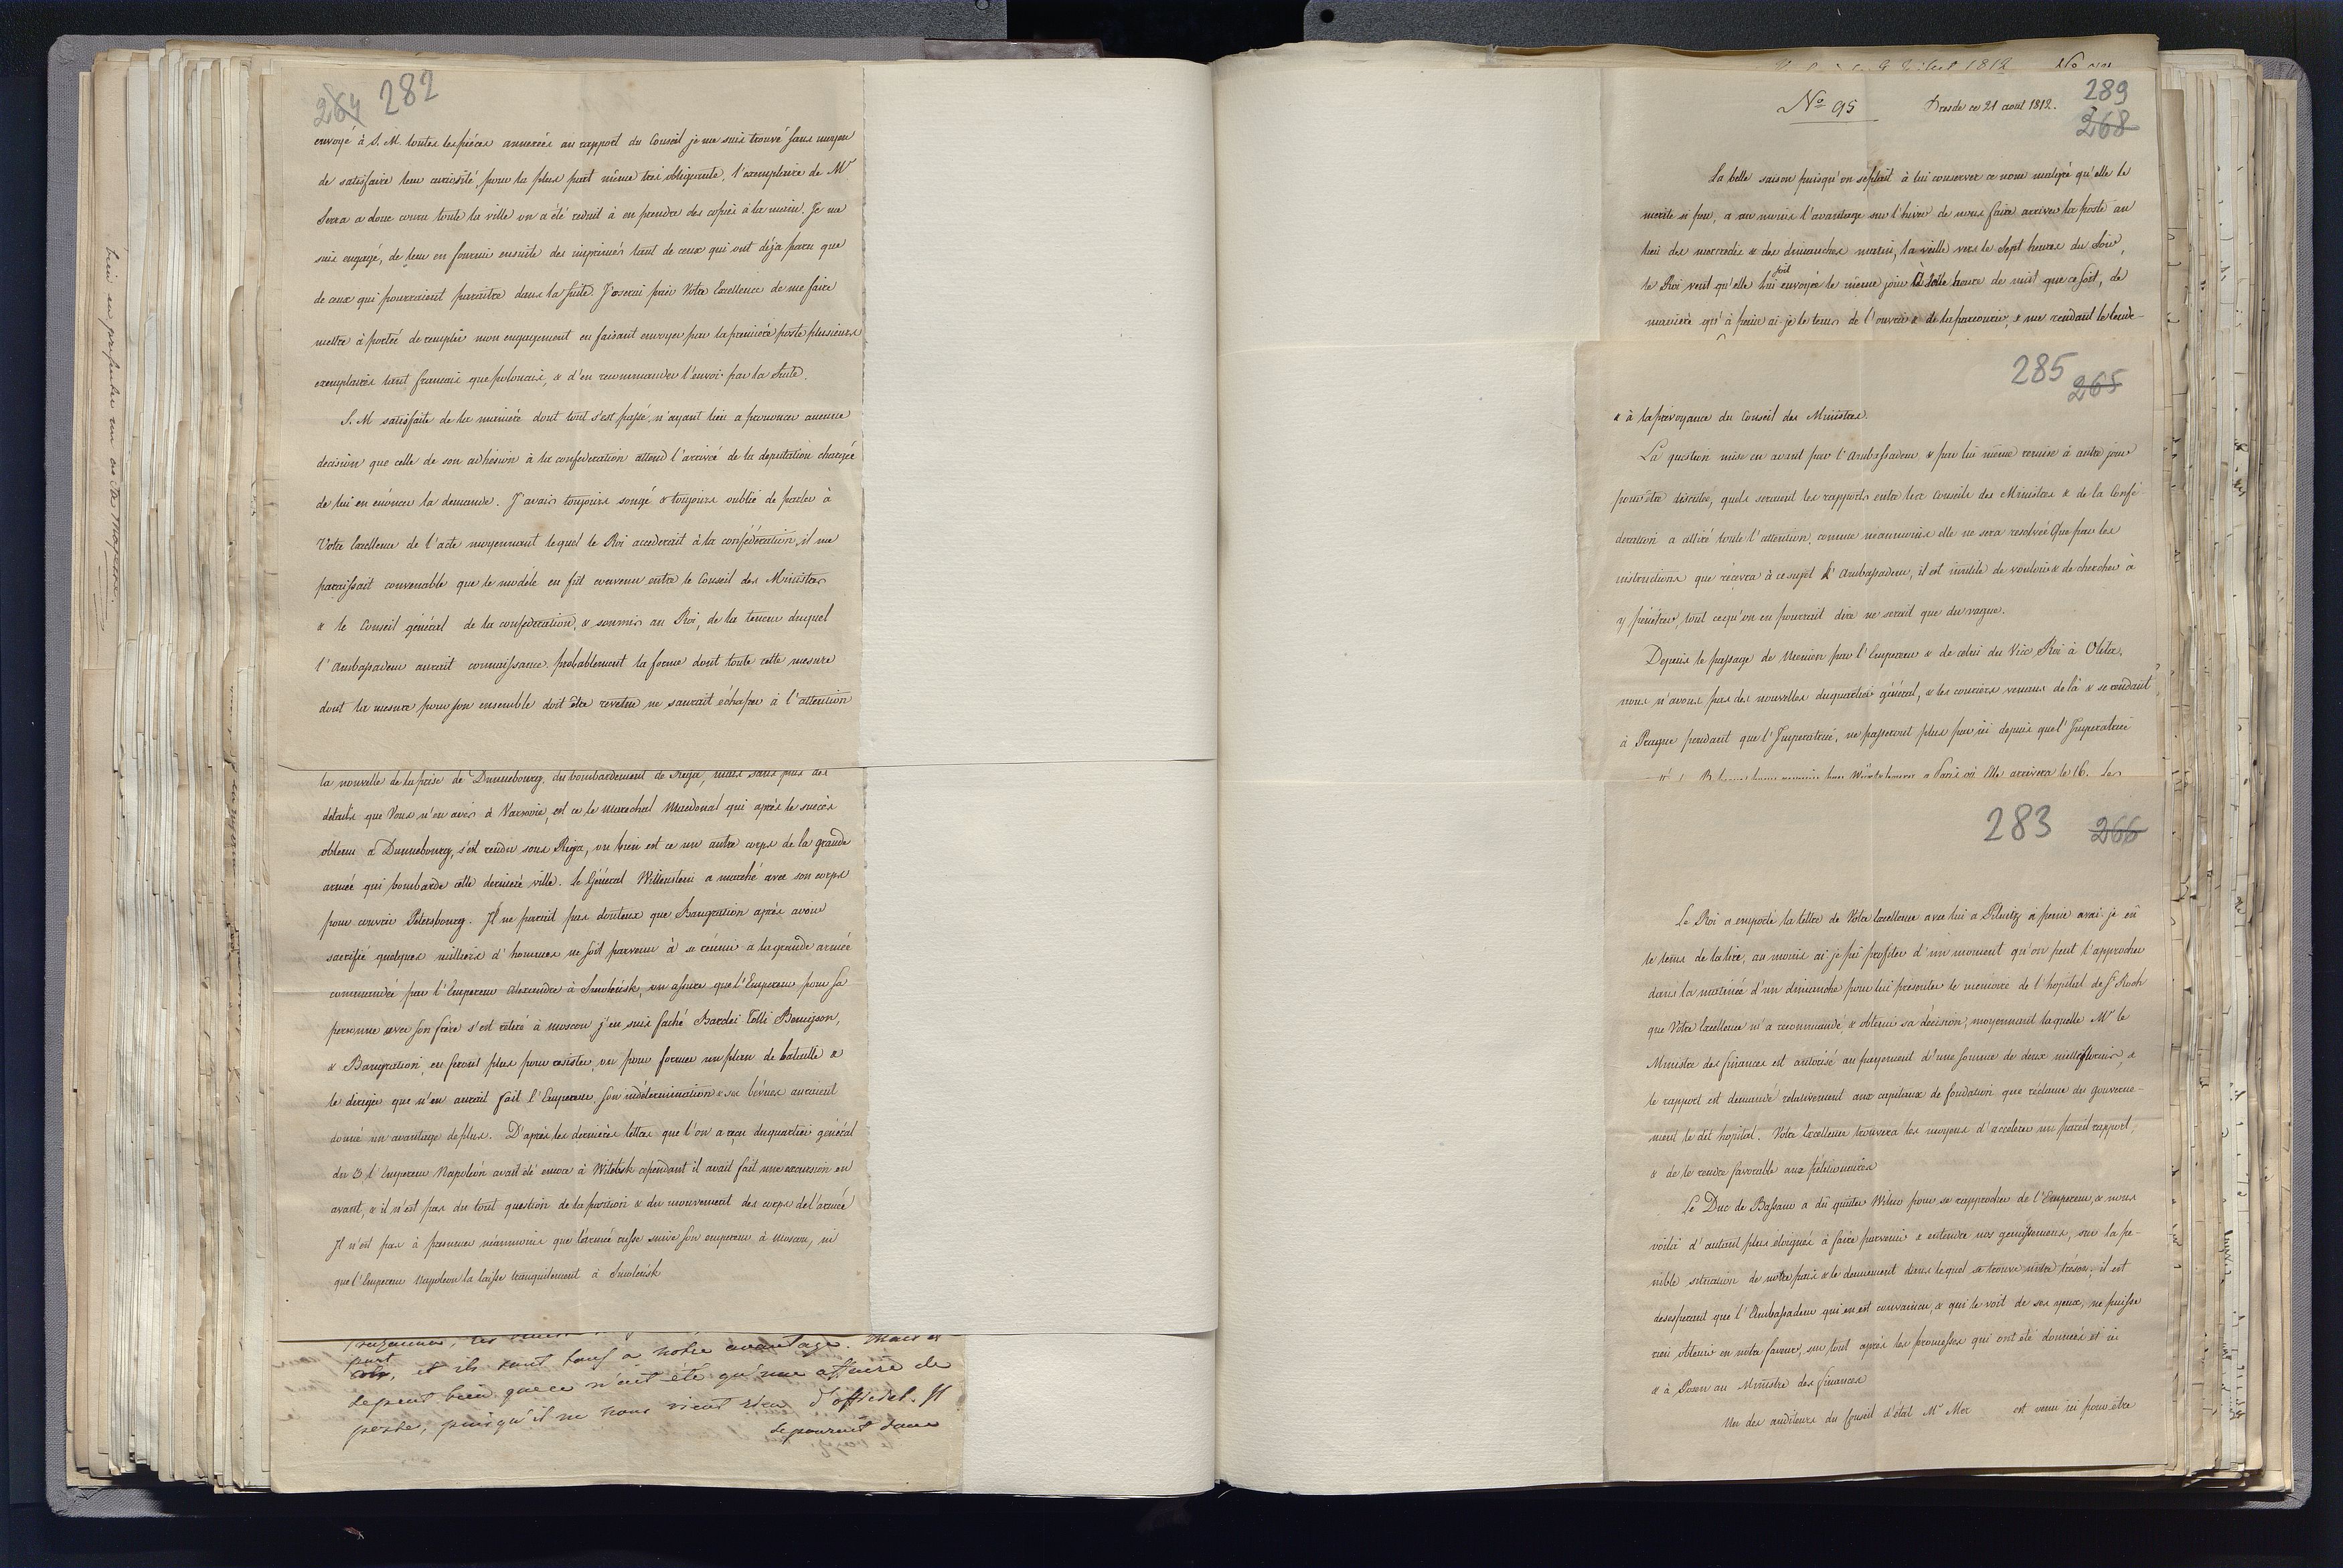 264 282
envoyé à S. M. toutes les piéces annexées au rapport du Conseil je me suis trouvé sans moyen
de satisfaire leur curiosité, pour la plus part même tres obligeante, l'exemplaire de Mr
Serra a donc couru toute la ville on a été reduit à en prendre des copies à la main. Je me
suis engagé, de leur en fournir ensuite des imprimés tant de ceux qui ont déja paru que
de ceux qui pourraient parraitre dans la suite. J'oserai prier Votre Excellence de me faire
mettre à porteé de remplir mon engagement en faisant envoyer par la premieré poste plusieurs
exemplaires tant francais que polonais, & d'en recommander l'envoi par la suite.
S. M satisfaite de la manieré dont tout s'est passé, n'ayant lieu a prononcer aucune
decision que celle de son adhésion à la confederation attend l'arriveé de la deputation chargée
de lui en enoncer la demande. J'avais toujours songé & toujours oublié de parler à
Votre Excellence de l'acte moyennant lequel le Roi accederait à la confédération, il me
paraissait convenable que le modéle en fût convenu entre le Conseil des Ministres
& le Conseil général de la confederation, & soumis au Roi, de la teneur duquel
l'Ambassadeur aurait connaissance. probablement la forme dont toute cette mesure
dont la mesure pour son ensemble doit être revetue ne saurait échaper à l'attention
la nouvelle de la prise de Dunnebourg, du bombardement de Riga, mais sans plus des
details que Vous n'en avés à Varsovie, est ce le marechal Macdonal qui après le succès
obtenu a Dunnebourg, s'est rendu sous Riga, ou bien est ce un autre corps de la grande
armée qui bombarde cette dernieré ville. le Général Wittenstein a marché avec son corps
pour couvrir Petersbourg. Il ne parait pas douteux que Baugration après avoir
sacrifié quelques milliers d'hommes ne soit parvenu à se réunir à la grande armée
commandée par l'Empereur Alexandre à Smolensk, on assure que l'Empereur pour sa
personne avec son frère s'est retiré à Moscou j'en suis faché Barclei Tolli Benigson,
& Baugration, en feront plus pour resister, ou pour former un plan de bataille &
le diriger que n'en aurait fait l'Empereur. son indétermination & ses bévues auraient
donné un avantage de plus. D'après les dernieres lettres que l'on a reçu du quartier général
du 3 l'Empereur Napoléon avait été encor à Witebsk cependant il avait fait une excursion en
avant, & il n'est pas du tout question de la position & du mouvement des corps de l'armée
Il n'est pas à presumer néanmoins que l'armée russe suive son empereur à Moscou, ni
que l'Empereur Napoleon la laisse tranquilement à Smolensk
part
et ils sont tous a notre avantage. Mais il
se peut bien que ce n'ait été qu'une affaire de
poste, puisqu'il ne nous vient rien d'officiel. Il
se pourrait donc
No 95 Dresde ce 21 aout 1812. 289
268
La belle saison puisqu'on se plait à lui conserver ce nom malgré qu'elle le
merite si peu, a au moins l'avantage sur l'hiver de nous faire arriver la poste au
lieu des mercredis & des dimanches matin, la veille vers le sept heures du soir,
soit
le Roi veut qu'elle lui envoyée le même jour à telle heure de nuit que ce soit, de
manieré qu'à peine ai-je le tems de l'ouvrir & de la parcourir, & me rendant le lende-
285 265
& à la prévoyance du Conseil des Ministres.
La question mise en avant par l'Ambassadeur & par lui même remise à autre jour
pour être discutée, quels seraient les rapports entre les Conseils des Ministres & de la Confé
deration a attiré toute l'attention, comme neanmoins elle ne sera resolvée que par les
instructions que récevra à ce sujet l'Ambassadeur, il est inutile de vouloir & de chercher à
y pénétrer, tout ce qu'on en pourrait dire ne serait que du vague.
Depuis le passage de Niemen par l'Empereur & de celui du Vice Roi à Olita,
nous n'avons pas des nouvelles du quartier général, & les couriers venans de là & se rendant
à Prague pendant que l'Imperatrice, ne passeront plus par ici depuis que l'Imperatrice
a Paris où Elle arrivera le 16. Les
283 266
Le Roi a emporté la lettre de Votre Excellence avec lui a Pilnitz à peine avai-je eû
le tems de la lire, au moins ai-je pu profiter d'un moment qu'on peut l'approcher
dans la matinée d'un dimanche pour lui présenter le memoire de l'hopital de St Roch
que Votre Excellence m'a recommandé & obtenir sa décision, moyennant laquelle Mr le
Ministre des finances est autorisé au payement d'une somme de deux mille florins, &
le rapport est demandé relativement aux capitaux de fondation que réclame du gouverne-
ment le dit hopital. Votre Excellence trouvera les moyens d'accelerer un pareil rapport,
& de le rendre favorable aux pétitionnaires
Le Duc de Bassano a dû quitter Wilna pour se rapprocher de l'Empereur, & nous
voilà d'autant plus eloignés à faire parvenir & entendre nos gemissemens, sur la pe-
nible situation de notre pais & le denuement dans lequel se trouve notre trésor, il est
desesperant que l'Ambassadeur qui en est convaincu, & qui le voit de ses yeux, ne puisse
rien obtenir en notre faveur, sur tout après les promesses qui ont été donnés et ici
& à Posen au Ministre des finances
Un des auditeurs du Conseil d'état Mr Mor est venu ici pour être